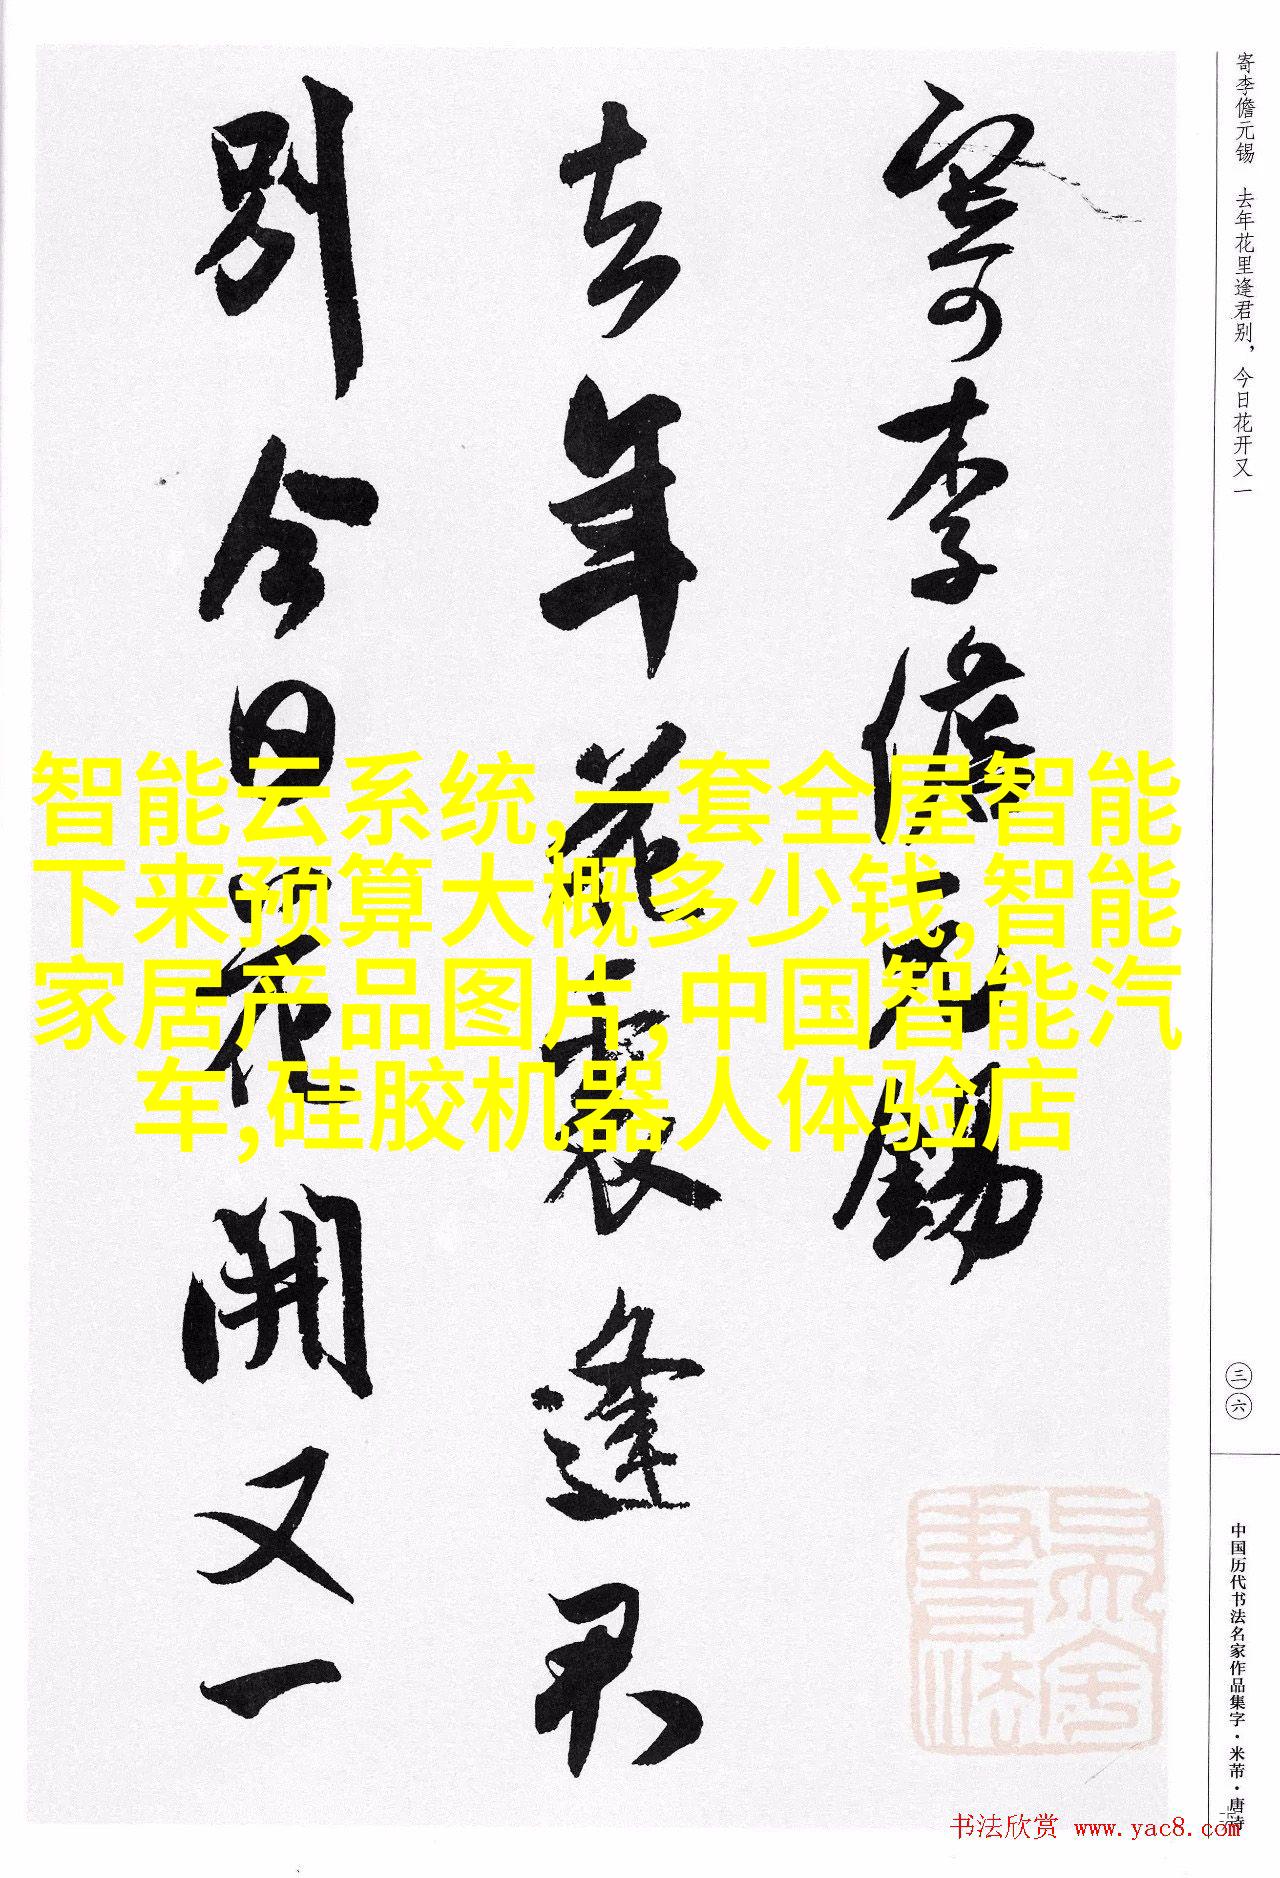 寄李儋元锡 去年花里逢君别，今日花开又一
寄李儋元錫
去年花裏逢君
别今日花開又一
智能云系统,一套全屋智能
下来预算大概多少钱,智能
家居产品图片,中国智能汽
车,硅胶机器人体验店
三六
中国历代书法名家作品集字·米芾·唐诗
书法欣赏 www.yac8.com